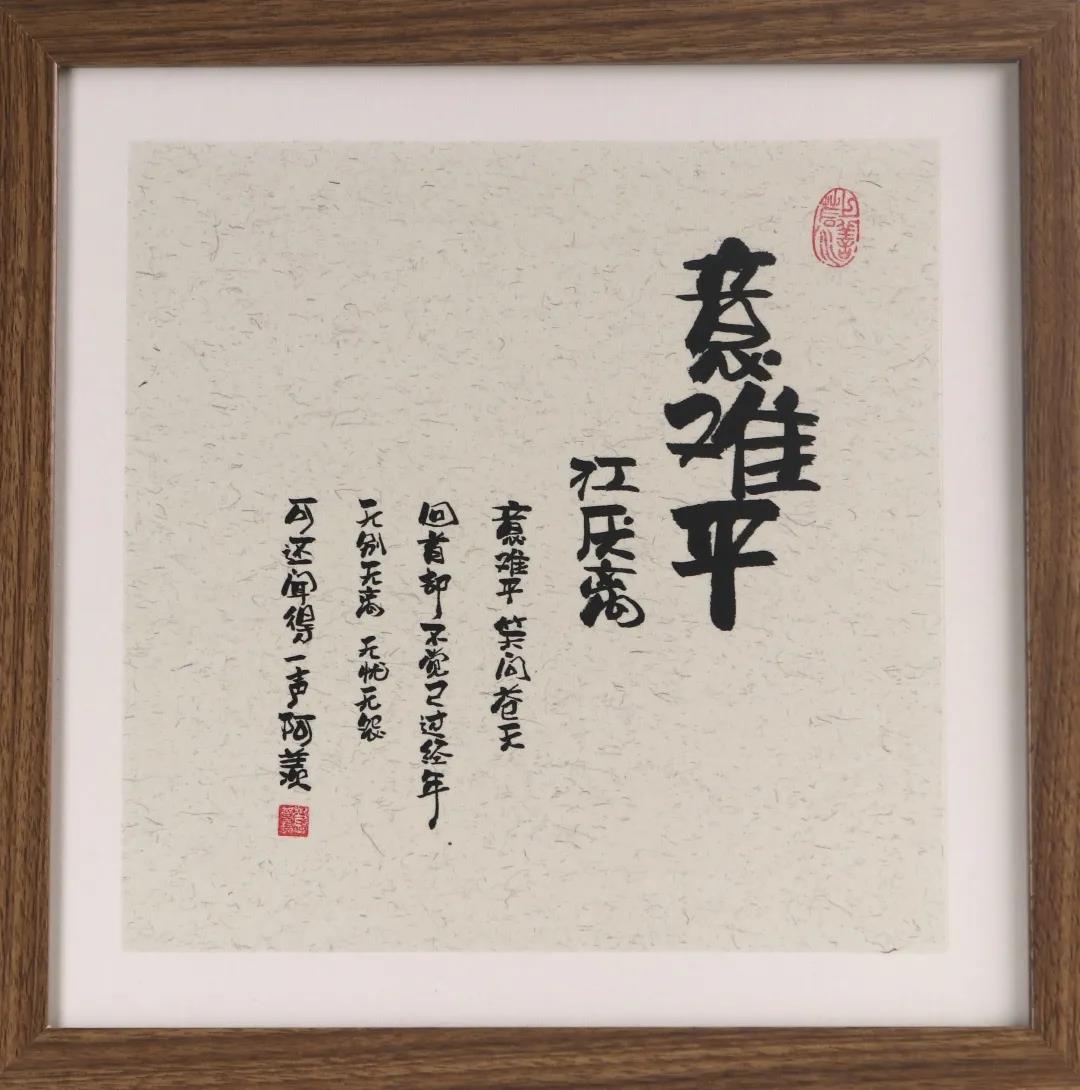 意难平
江厌离
意难平 笑问苍天
回首却不觉已过经年
无别无离 无忧无怨
可还闻得一声阿羡
上善若水